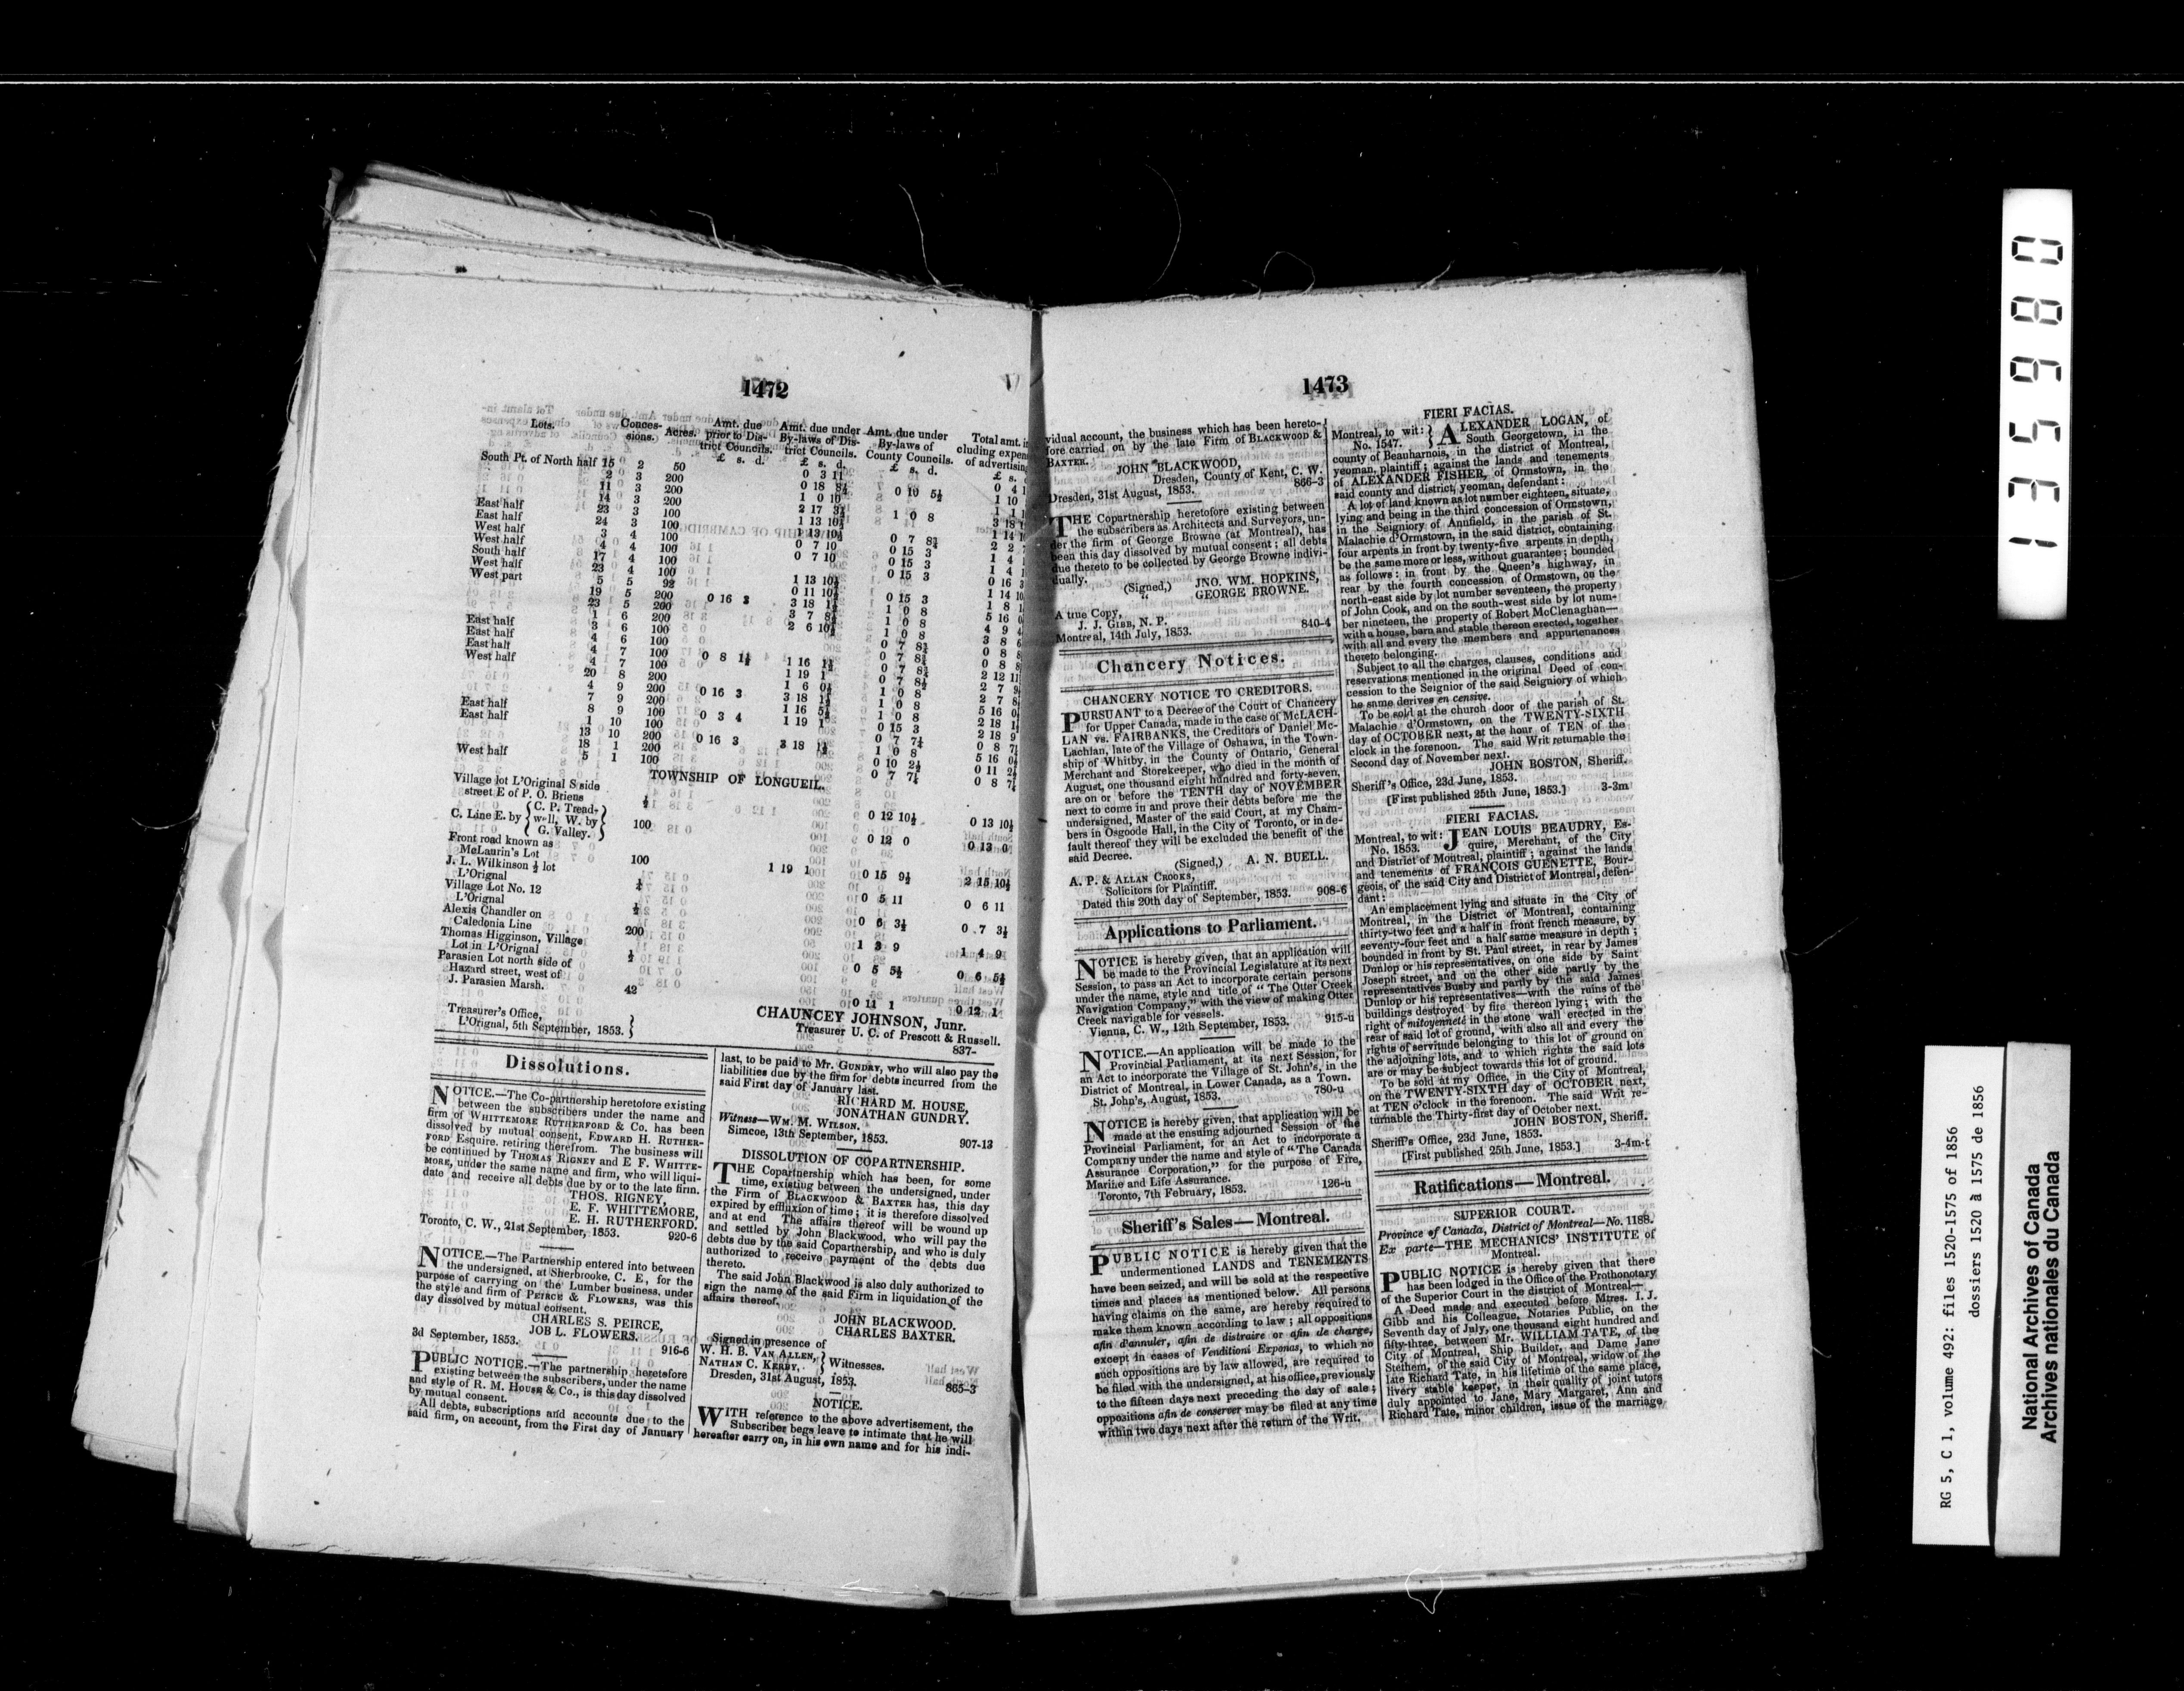 1472
Lots.
Conces-
sions.
Acres.
Amt. due
prior to Dis-
trict Councils.
£ s. d.
Amt. due under
By-laws of Dis-
trict Councils.
£ s. d.
Amt. due under
By-laws of
County Councils.
£ s. d.
Total amt. in
cluding expen
of advertising
£ s.
South Pt. of North half 15 2 50
2 3 200
11 3 200
East half 14 3 200
East half 23 3 100
West half 24 3 100
West half 3 4 100
South half 4 4 100
West half 17 4 100
West part 23 4 100
5 5 92
19 5 200
23 5 200
East half 1 6 200
East half 3 6 100
East half 4 6 100
West half 4 7 100
4 7 100
20 8 200
4 9 200
East half 7 9 200
East half 8 9 100
1 10 100
13 10 200
West half 18 1 200
5 1 100
TOWNSHIP OF LONGUEIL.
Village lot L'Original S side
street E of P. O. Briens ½ 0 12 10½ 0 13 10½
C. Line E. by { C. P. Tread-
well, W. by
G. Valley. } 100 0 12 0 0 13 0
Front road known as
McLaurin's Lot 100 1 19 1 0 15 9½ 2 15 10½
J. L. Wilkinson ½ lot
L'Orignal 0 5 11 0 6 11
Village Lot No. 12
L'Orignal ½ 0 6 3½ 0 7 3½
Alexis Chandler on
Caledonia Line 200 1 3 9 1 4 9
Thomas Higginson, Village
Lot in L'Orignal ½ 0 5 5½ 0 6 5½
Parasien Lot north side of
Hazard street, west of
J. Parasien Marsh. 42 0 11 1 0 12 1
CHAUNCEY JOHNSON, Junr.
Treasurer U. C. of Prescott & Russell.
Treasurer's Office,
L'Orignal, 5th September, 1853. }
837-
Dissolutions.
NOTICE.—The Co-partnership heretofore existing
between the subscribers under the name and
firm of WHITTEMORE RUTHERFORD & Co. has been
dissolved by mutual consent, EDWARD H. RUTHER-
FORD Esquire, retiring therefrom. The business will
be continued by THOMAS RIGNEY and E F. WHITTE-
MORE, under the same name and firm, who will liqui-
date and receive all debts due by or to the late firm.
THOS. RIGNEY,
E. F. WHITTEMORE,
E. H. RUTHERFORD.
Toronto, C. W., 21st September, 1853. 920-6
NOTICE.—The Partnership entered into between
the undersigned, at Sherbrooke, C. E, for the
purpose of carrying on the Lumber business, under
the style and firm of PEIRCE & FLOWERS, was this
day dissolved by mutual consent.
CHARLES S. PEIRCE,
JOB L. FLOWERS.
3d September, 1853. 916-6
PUBLIC NOTICE.—The partnership heretofore
existing between the subscribers, under the name
and style of R. M. HOUSE & Co., is this day dissolved
by mutual consent.
All debts, subscriptions and accounts due to the
said firm, on account, from the First day of January
last, to be paid to Mr. GUNDRY, who will also pay the
liabilities due by the firm for debts incurred from the
said First day of January last.
RICHARD M. HOUSE,
JONATHAN GUNDRY.
Witness—WM. M. WILSON.
Simcoe, 13th September, 1853. 907-13
DISSOLUTION OF COPARTNERSHIP.
THE Copartnership which has been, for some
time, existing between the undersigned, under
the Firm of BLACKWOOD & BAXTER has, this day
expired by effluxion of time; it is therefore dissolved
and at end The affairs thereof will be wound up
and settled by John Blackwood, who will pay the
debts due by the said Copartnership, and who is duly
authorized to receive payment of the debts due
thereto.
The said John Blackwood is also duly authorized to
sign the name of the said Firm in liquidation of the
affairs thereof.
JOHN BLACKWOOD.
CHARLES BAXTER.
Signed in presence of
W. H. B. VAN ALLEN, }
NATHAN C. KERBY, } Witnesses.
Dresden, 31st August, 1853. 865-3
NOTICE.
WITH reference to the above advertisement, the
Subscriber begs leave to intimate that he will
hereafter carry on, in his own name and for his indi-
1473
vidual account, the business which has been hereto-
fore carried on by the late Firm of BLACKWOOD &
BAXTER.
JOHN BLACKWOOD,
Dresden, County of Kent, C. W.
Dresden, 31st August, 1853. 866-3
THE Copartnership heretofore existing between
the subscribers as Architects and Surveyors, un-
der the firm of George Browne (at Montreal), has
been this day dissolved by mutual consent; all debts
due thereto to be collected by George Browne indivi-
dually.
(Signed,) JNO. WM. HOPKINS,
" GEORGE BROWNE.
A true Copy,
J. J. GIBB, N. P.
Montreal, 14th July, 1853. 840-4
Chancery Notices.
CHANCERY NOTICE TO CREDITORS.
PURSUANT to a Decree of the Court of Chancery
for Upper Canada, made in the case of McLACH-
LAN vs. FAIRBANKS, the Creditors of Daniel Mc-
Lachlan, late of the Village of Oshawa, in the Town-
ship of Whitby, in the County of Ontario, General
Merchant and Storekeeper, who died in the month of
August, one thousand eight hundred and forty-seven,
are on or before the TENTH day of NOVEMBER
next to come in and prove their debts before me the
undersigned, Master of the said Court, at my Cham-
bers in Osgoode Hall, in the City of Toronto, or in de-
fault thereof they will be excluded the benefit of the
said Decree.
(Signed,) A. N. BUELL.
A. P. & ALLAN CROOKS,
Solicitors for Plaintiff.
Dated this 20th day of September, 1853. 908-6
Applications to Parliament.
NOTICE is hereby given, that an application will
be made to the Provincial Legislature at its next
Session, to pass an Act to incorporate certain persons
under the name, style and title of "The Otter Creek
Navigation Company," with the view of making Otter
Creek navigable for vessels.
Vienna, C. W., 12th September, 1853. 915-u
NOTICE.—An application will be made to the
Provincial Parliament, at its next Session, for
an Act to incorporate the Village of St. John's, in the
District of Montreal, in Lower Canada, as a Town.
St. John's, August, 1853. 780-u
NOTICE is hereby given, that application will be
made at the ensuing adjourned Session of the
Provincial Parliament, for an Act to incorporate a
Company under the name and style of "The Canada
Assurance Corporation," for the purpose of Fire,
Marine and Life Assurance.
Toronto, 7th February, 1853. 126-u
Sheriff's Sales—Montreal.
PUBLIC NOTICE is hereby given that the
undermentioned LANDS and TENEMENTS
have been seized, and will be sold at the respective
times and places as mentioned below. All persons
having claims on the same, are hereby required to
make them known according to law; all oppositions
afin d'annuler, afin de distraire or afin de charge,
except in cases of Venditioni Exponas, to which no
such oppositions are by law allowed, are required to
be filed with the undersigned, at his office, previously
to the fifteen days next preceding the day of sale;
oppositions afin de conserver may be filed at any time
within two days next after the return of the Writ.
FIERI FACIAS.
Montreal, to wit: } ALEXANDER LOGAN, of
No. 1547. } South Georgetown, in the
county of Beauharnois, in the district of Montreal,
yeoman, plaintiff; against the lands and tenements
of ALEXANDER FISHER, of Ormstown, in the
said county and district, yeoman, defendant:
A lot of land known as lot number eighteen, situate,
lying and being in the third concession of Ormstown,
in the Seigniory of Annfield, in the parish of St.
Malachie d'Ormstown, in the said district, containing
four arpents in front by twenty-five arpents in depth,
be the same more or less, without guarantee; bounded
as follows: in front by the Queen's highway, in
rear by the fourth concession of Ormstown, on the
north-east side by lot number seventeen, the property
of John Cook, and on the south-west side by lot num-
ber nineteen, the property of Robert McClenaghan—
with a house, barn and stable thereon erected, together
with all and every the members and appurtenances
thereto belonging.
Subject to all the charges, clauses, conditions and
reservations mentioned in the original Deed of con-
cession to the Seignior of the said Seigniory of which
he same derives en censive.
To be sold at the church door of the parish of St.
Malachie d'Ormstown, on the TWENTY-SIXTH
day of OCTOBER next, at the hour of TEN of the
clock in the forenoon. The said Writ returnable the
Second day of November next.
JOHN BOSTON, Sheriff.
Sheriff's Office, 23d June, 1853.
[First published 25th June, 1853.] 3-3m
FIERI FACIAS.
Montreal, to wit: JEAN LOUIS BEAUDRY, Es-
No. 1853. quire, Merchant, of the City
and District of Montreal, plaintiff; against the lands
and tenements of FRANÇOIS GUENETTE, Bour-
geois, of the said City and District of Montreal, defen-
dant:
An emplacement lying and situate in the City of
Montreal, in the District of Montreal, containing
thirty-two feet and a half in front french measure, by
seventy-four feet and a half same measure in depth;
bounded in front by St. Paul street, in rear by James
Dunlop or his representatives, on one side by Saint
Joseph street, and on the other side partly by the
representatives Busby and partly by the said James
Dunlop or his representatives—with the ruins of the
buildings destroyed by fire thereon lying; with the
right of mitoyenneté in the stone wall erected in the
rear of said lot of ground, with also all and every the
rights of servitude belonging to this lot of ground on
the adjoining lots, and to which rights the said lots
are or may be subject towards this lot of ground.
To be sold at my Office, in the City of Montreal,
on the TWENTY-SIXTH day of OCTOBER next,
at TEN o'clock in the forenoon. The said Writ re-
turnable the Thirty-first day of October next.
JOHN BOSTON, Sheriff.
Sheriff's Office, 23d June, 1853.
[First published 25th June, 1853.] 3-4m-t
Ratifications—Montreal.
SUPERIOR COURT.
Province of Canada, District of Montreal—No. 1188.
Ex parte—THE MECHANICS' INSTITUTE of
Montreal.
PUBLIC NOTICE is hereby given that there
has been lodged in the Office of the Prothonotary
of the Superior Court in the district of Montreal—
A Deed made and executed before Mtres. I. J.
Gibb and his Colleague, Notaries Public, on the
Seventh day of July, one thousand eight hundred and
fifty-three, between Mr. WILLIAM TATE, of the
City of Montreal, Ship Builder, and Dame Jane
Stethem, of the said City of Montreal, widow of the
late Richard Tate, in his lifetime of the same place,
livery stable keeper, in their quality of joint tutors
duly appointed to Jane, Mary Margaret, Ann and
Richard Tate, minor children, issue of the marriage
135980
RG 5, C 1, volume 492: files 1520-1575 of 1856
dossiers 1520 à 1575 de 1856
National Archives of Canada
Archives nationales du Canada